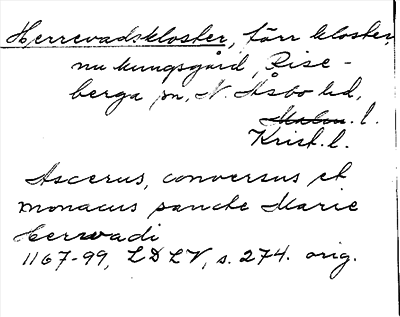 Herrevadskloster, förr kloster,
nu kungsgård, Rise-
berga sn, N. Åsbo hd,
Malm. l.
Krist. l.
Ascerus, conversus et
monacus sancte Marie
Herrvadi
1167-99, LDLV, s. 274. orig.